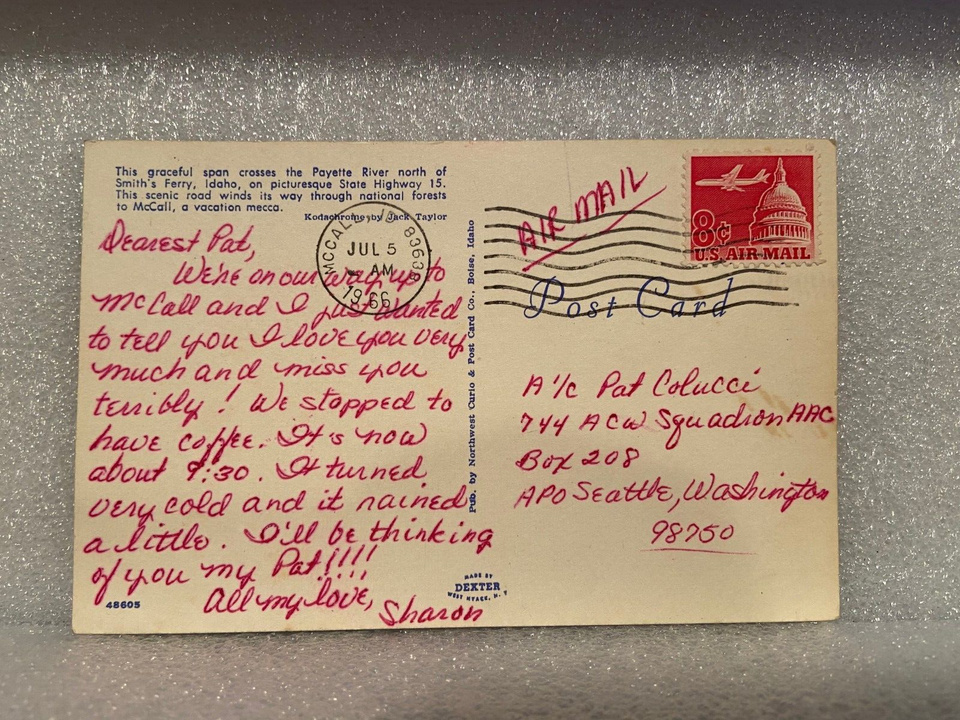 This graceful span crosses the Payette River north of
Smith's Ferry, Idaho, on picturesque State Highway 15.
This scenic road winds its way through national forests
to McCall, a vacation mecca.
Kodachrome by Jack Taylor
Dearest Pat,
We're on our way up to
McCall and I just wanted
to tell you I love you very
much and miss you
terribly! We stopped to
have coffee. It's now
about 9:30. It turned
very cold and it rained
a little. I'll be thinking
of you my Pat!!!!
All my love,
Sharon
48605
MADE BY
DEXTER
WEST NYACK, N.Y.
Pub. by Northwest Curio & Post Card Co., Boise, Idaho
MCCALL 83638
JUL 5
AM
1966
AIR MAIL
8¢
U.S. AIR MAIL
Post Card
A/1c Pat Colucci
744 ACW Squadron AAC
Box 208
APO Seattle, Washington
98750